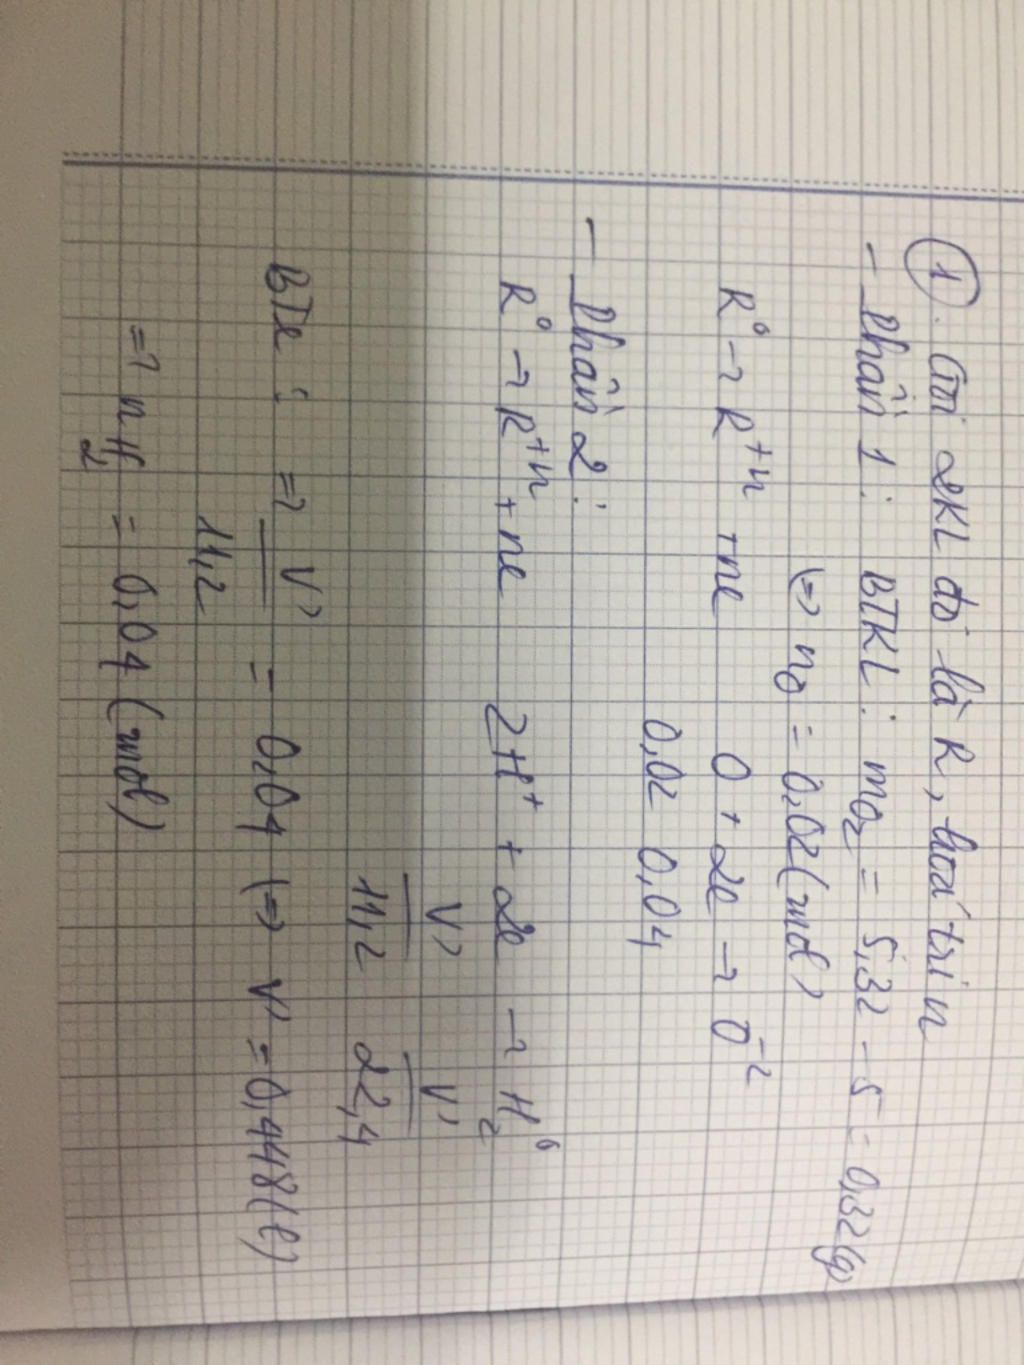 ① . Gọi 2KL đó là R, hoá trị n
- Phần 1 : BTKL : mO₂ = 5,32 - 5 = 0,32(g)
(=> nO = 0,02(mol)
R⁰ → R⁺ⁿ + ne O + 2e → O⁻²
0,02 0,04
- Phần 2 :
R⁰ → R⁺ⁿ + ne 2H⁺ + 2e → H₂⁰
V'/11,2 V'/22,4
BTe : => V'/11,2 = 0,04 (=> V' = 0,448(l)
=> nH₂ = 0,04(mol)